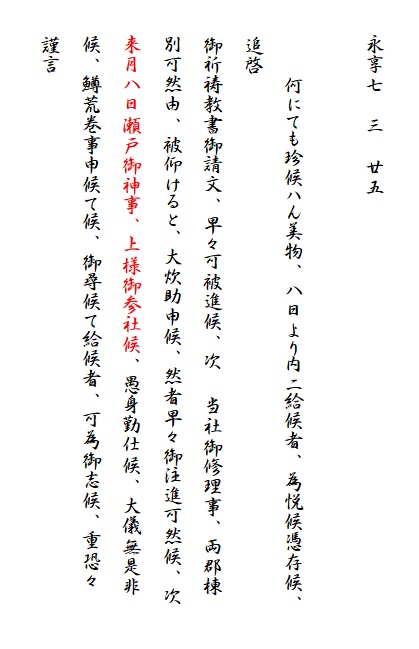 永享七　三　廿五
何にても珍候ハん美物、八日より内ニ給候者、為悦候憑存候、
追啓
御祈祷教書御請文、早々可被進候、次　当社御修理事、両郡棟
別可然由、被仰けると、大炊助申候、然者早々御注進可然候、次
来月八日瀬戸御神事、上様御参社候、愚身勤仕候、大儀無是非
候、鱒荒巻事申候て候、御尋候て給候者、可為御志候、重恐々
謹言